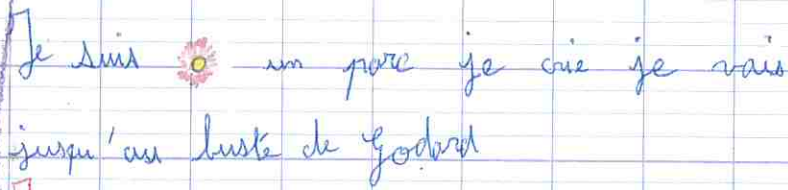 Je suis un parc je crie je vais
jusqu'au buste de Godard